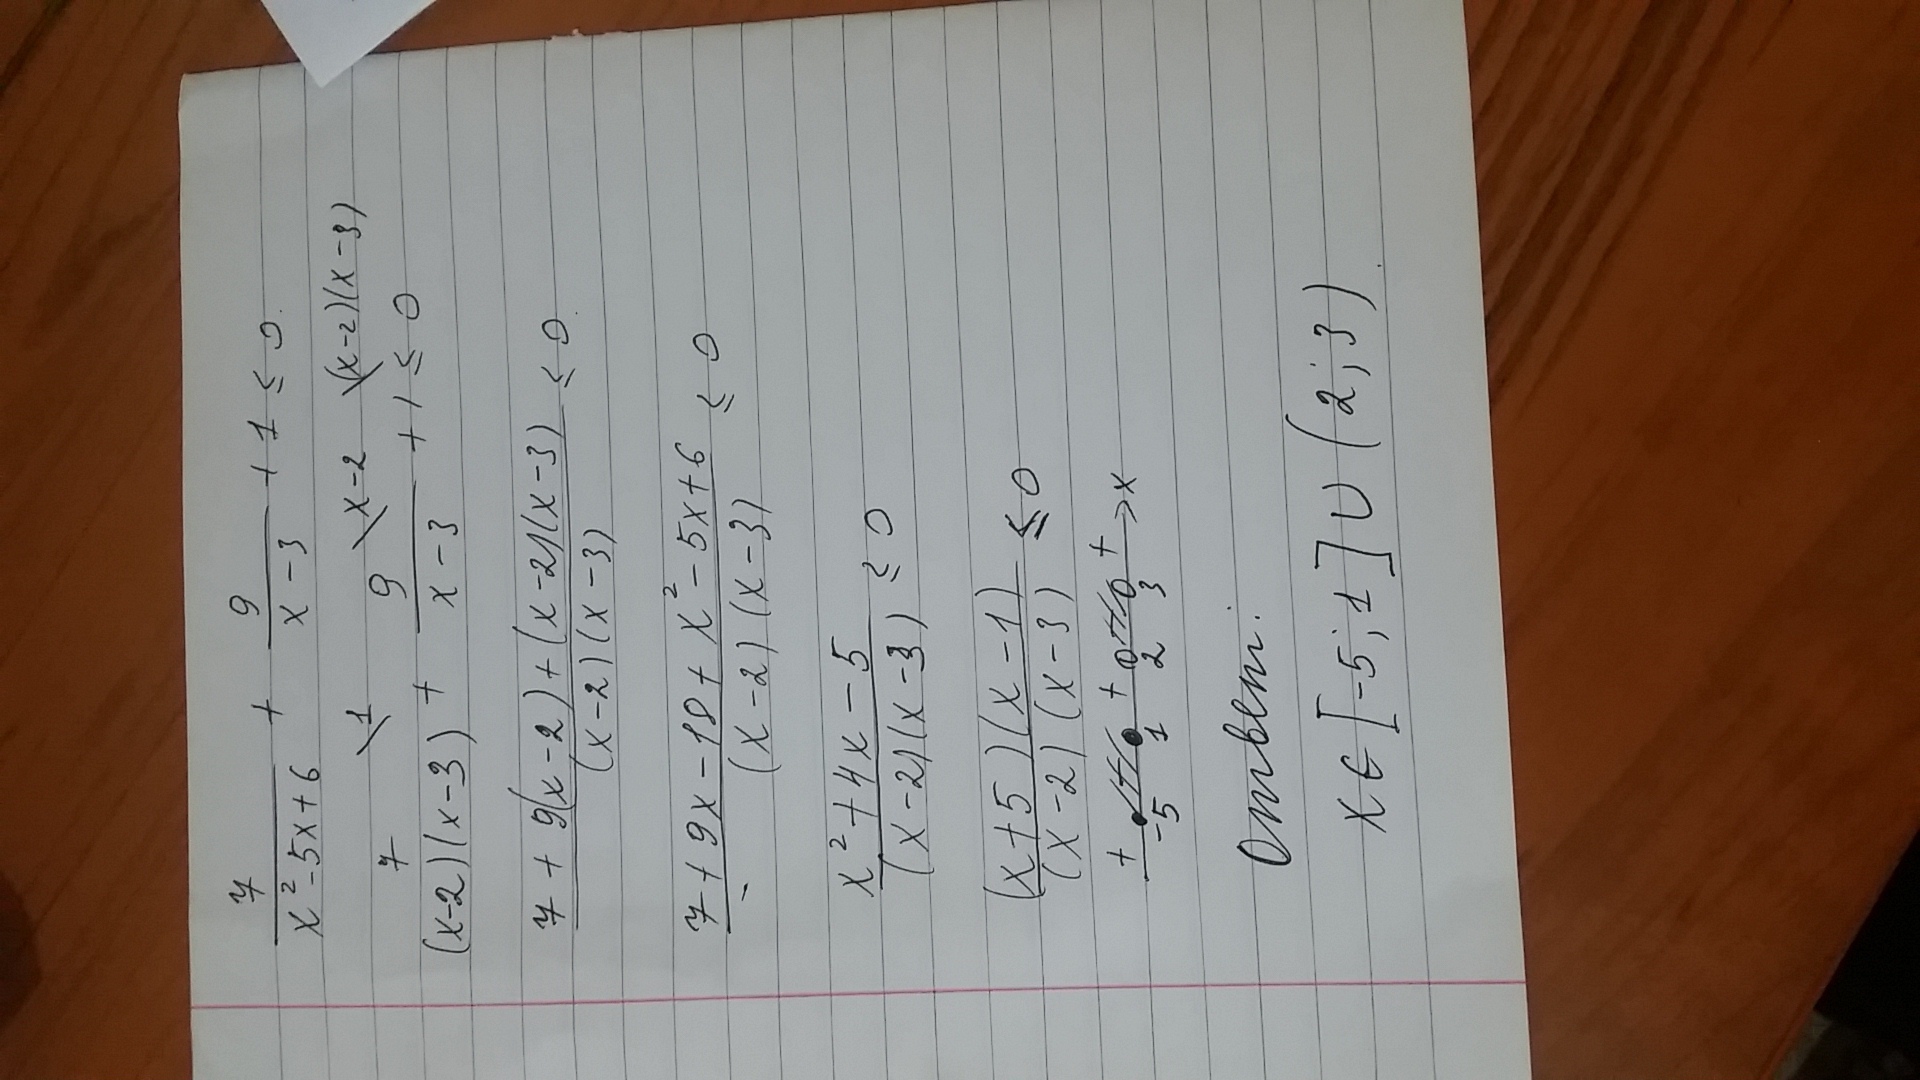 7/(x² - 5x + 6) + 9/(x - 3) + 1 ≤ 0.
7\1/((x-2)(x-3)) + 9\x-2/(x-3) + 1\(x-2)(x-3) ≤ 0
(7 + 9(x-2) + (x-2)(x-3))/((x-2)(x-3)) ≤ 0.
(7 + 9x - 18 + x² - 5x + 6)/((x-2)(x-3)) ≤ 0
(x² + 4x - 5)/((x-2)(x-3)) ≤ 0
((x+5)(x-1))/((x-2)(x-3)) ≤ 0
+ + + x
-5 1 2 3
Ответ:
x ∈ [-5; 1] ∪ (2; 3).